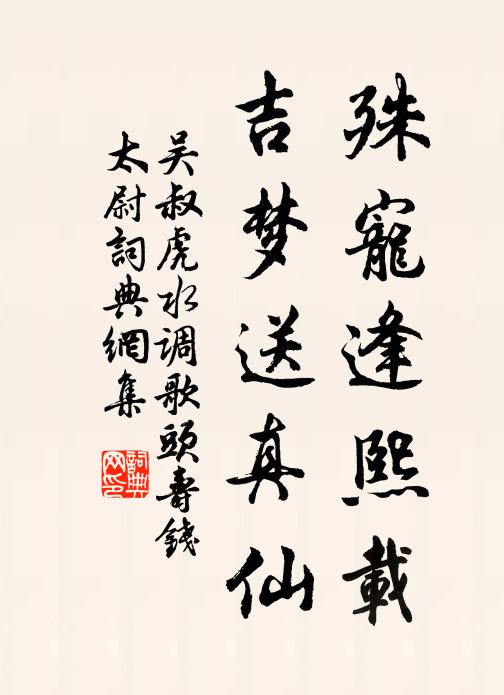 殊寵逢熙載
吉梦送真仙
吴叔虎水调歌頭壽錢
太尉詞典網集
詞典网印